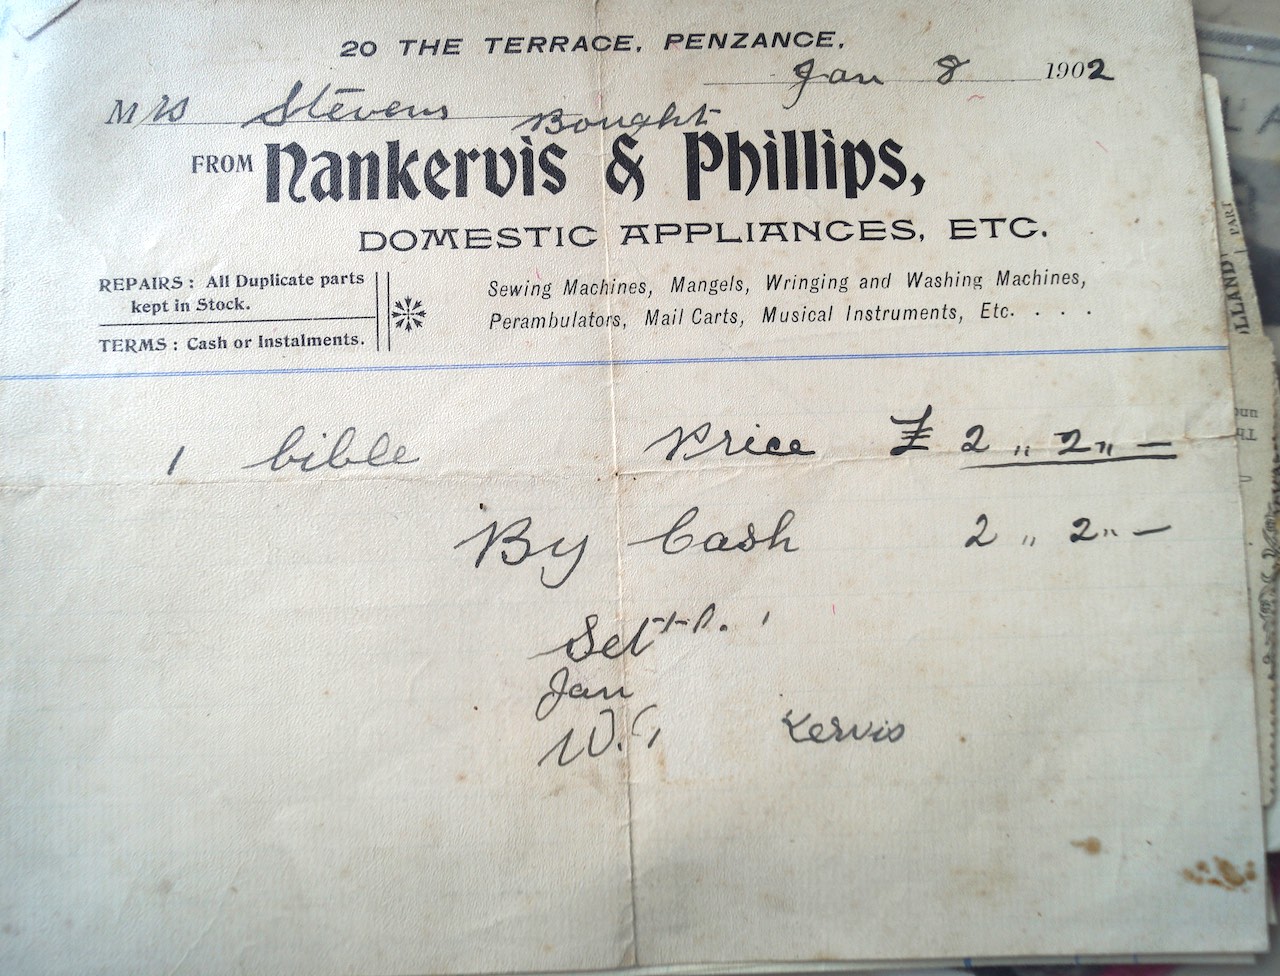 20 THE TERRACE, PENZANCE,
Jan 8 1902
Mrs Stevens Bought
FROM Nankervis & Phillips,
DOMESTIC APPLIANCES, ETC.
REPAIRS : All Duplicate parts
kept in Stock.
TERMS : Cash or Instalments.
Sewing Machines, Mangels, Wringing and Washing Machines,
Perambulators, Mail Carts, Musical Instruments, Etc. . . .
1 bible Price £ 2 „ 2 „ —
By Cash 2 „ 2 „ —
Jan
W. kervis
PART
LLAND